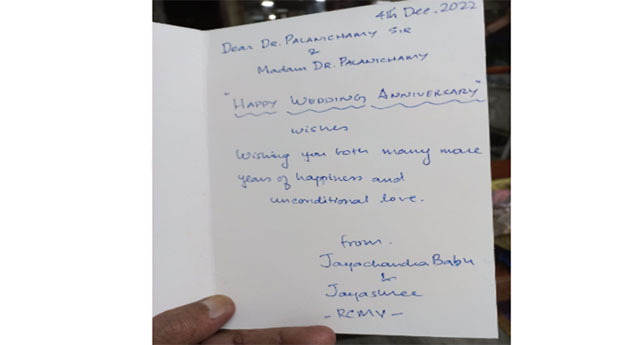 4th Dec. 2022
Dear DR. PALANICHAMY SIR
&
Madam DR. PALANICHAMY
"HAPPY WEDDING ANNIVERSARY"
wishes
Wishing you both many more
years of happiness and
unconditional love.
from.
Jayachandra Babu
&
Jayashree
- RCMV -